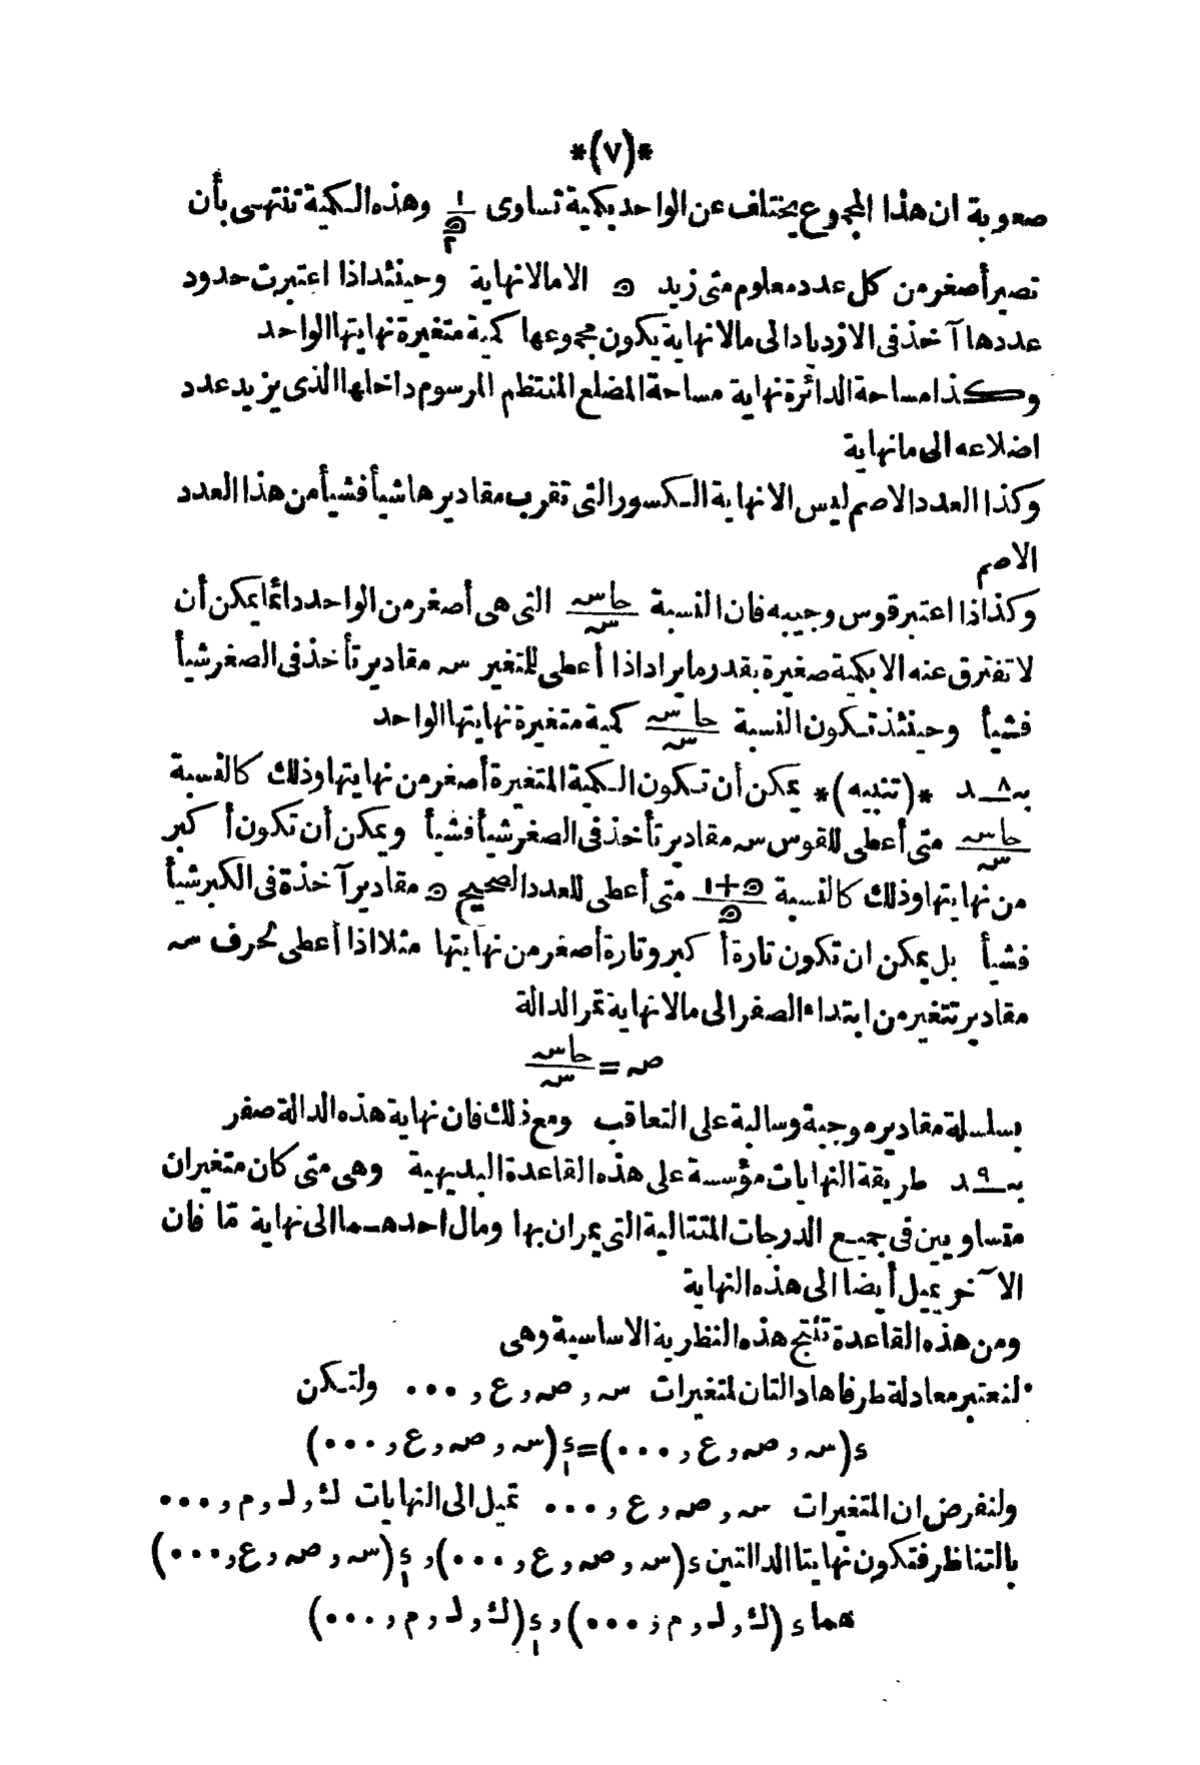 *(٧)*
صعوبة ان هذا المجموع يختلف عن الواحد بكمية تساوى ١/٢^𝒏 وهذه الكمية تنتهى بأن
تصير أصغر من كل عدد معلوم متى زيد ﻫ الى مالانهاية وحينئذ اذا اعتبرت حدود
عددها آخذ فى الازدياد الى مالانهاية يكون مجموعها كمية متغيرة نهايتها الواحد
وكذا مساحة الدائرة نهاية مساحة المضلع المنتظم المرسوم داخلها الذى يزيد عدد
اضلاعه الى مانهاية
وكذا العدد الاصم ليس الا نهاية الكسور التى تقرب مقاديرها شيأ فشيأ من هذا العدد
الاصم
وكذا اذا اعتبر قوس وجيبه فان النسبة حاسه/سه التى هى أصغر من الواحد دائما يمكن أن
لا تفترق عنه الا بكمية صغيرة بقدر ما يراد اذا أعطى للمتغير سه مقادير تأخذ فى الصغر شيأ
فشيأ وحينئذ تكون النسبة حاسه/سه كمية متغيرة نهايتها الواحد
بـ٨ـد *(تنبيه)* يمكن أن تكون الكمية المتغيرة أصغر من نهايتها وذلك كالنسبة
حاسه/سه متى أعطى للقوس سه مقادير تأخذ فى الصغر شيأ فشيأ ويمكن أن تكون أكبر
من نهايتها وذلك كالنسبة ﻫ+١/ﻫ متى أعطى للعدد الصحيح ﻫ مقادير آخذة فى الكبر شيأ
فشيأ بل يمكن ان تكون تارة أكبر وتارة أصغر من نهايتها مثلا اذا أعطى لحرف سه
مقادير تتغير من ابتداء الصفر الى مالانهاية تمر الدالة
صه = حاسه/سه
بسلسلة مقادير موجبة وسالبة على التعاقب ومع ذلك فان نهاية هذه الدالة صفر
بـ٩ـد طريقة النهايات مؤسسة على هذه القاعدة البديهية وهى متى كان متغيران
متساويين فى جميع الدرجات المتتالية التى يمران بها ومال احدهـما الى نهاية مّا فان
الآخر يميل أيضا الى هذه النهاية
ومن هذه القاعدة تنتج هذه النظرية الاساسية وهى
لنعتبر معادلة طرفاها دالتان لمتغيرات سه و صه و ع و ... ولتكن
ء(سه و صه و ع و ...)=ء١(سه و صه و ع و ...)
ولنفرض ان المتغيرات سه و صه و ع و ... تميل الى النهايات ك و ل و م و ...
بالتناظر فتكون نهايتا الدالتين ء(سه و صه و ع و ...) و ء١(سه و صه و ع و ...)
هما ء(ك و ل و م و ...) و ء١(ك و ل و م و ...)